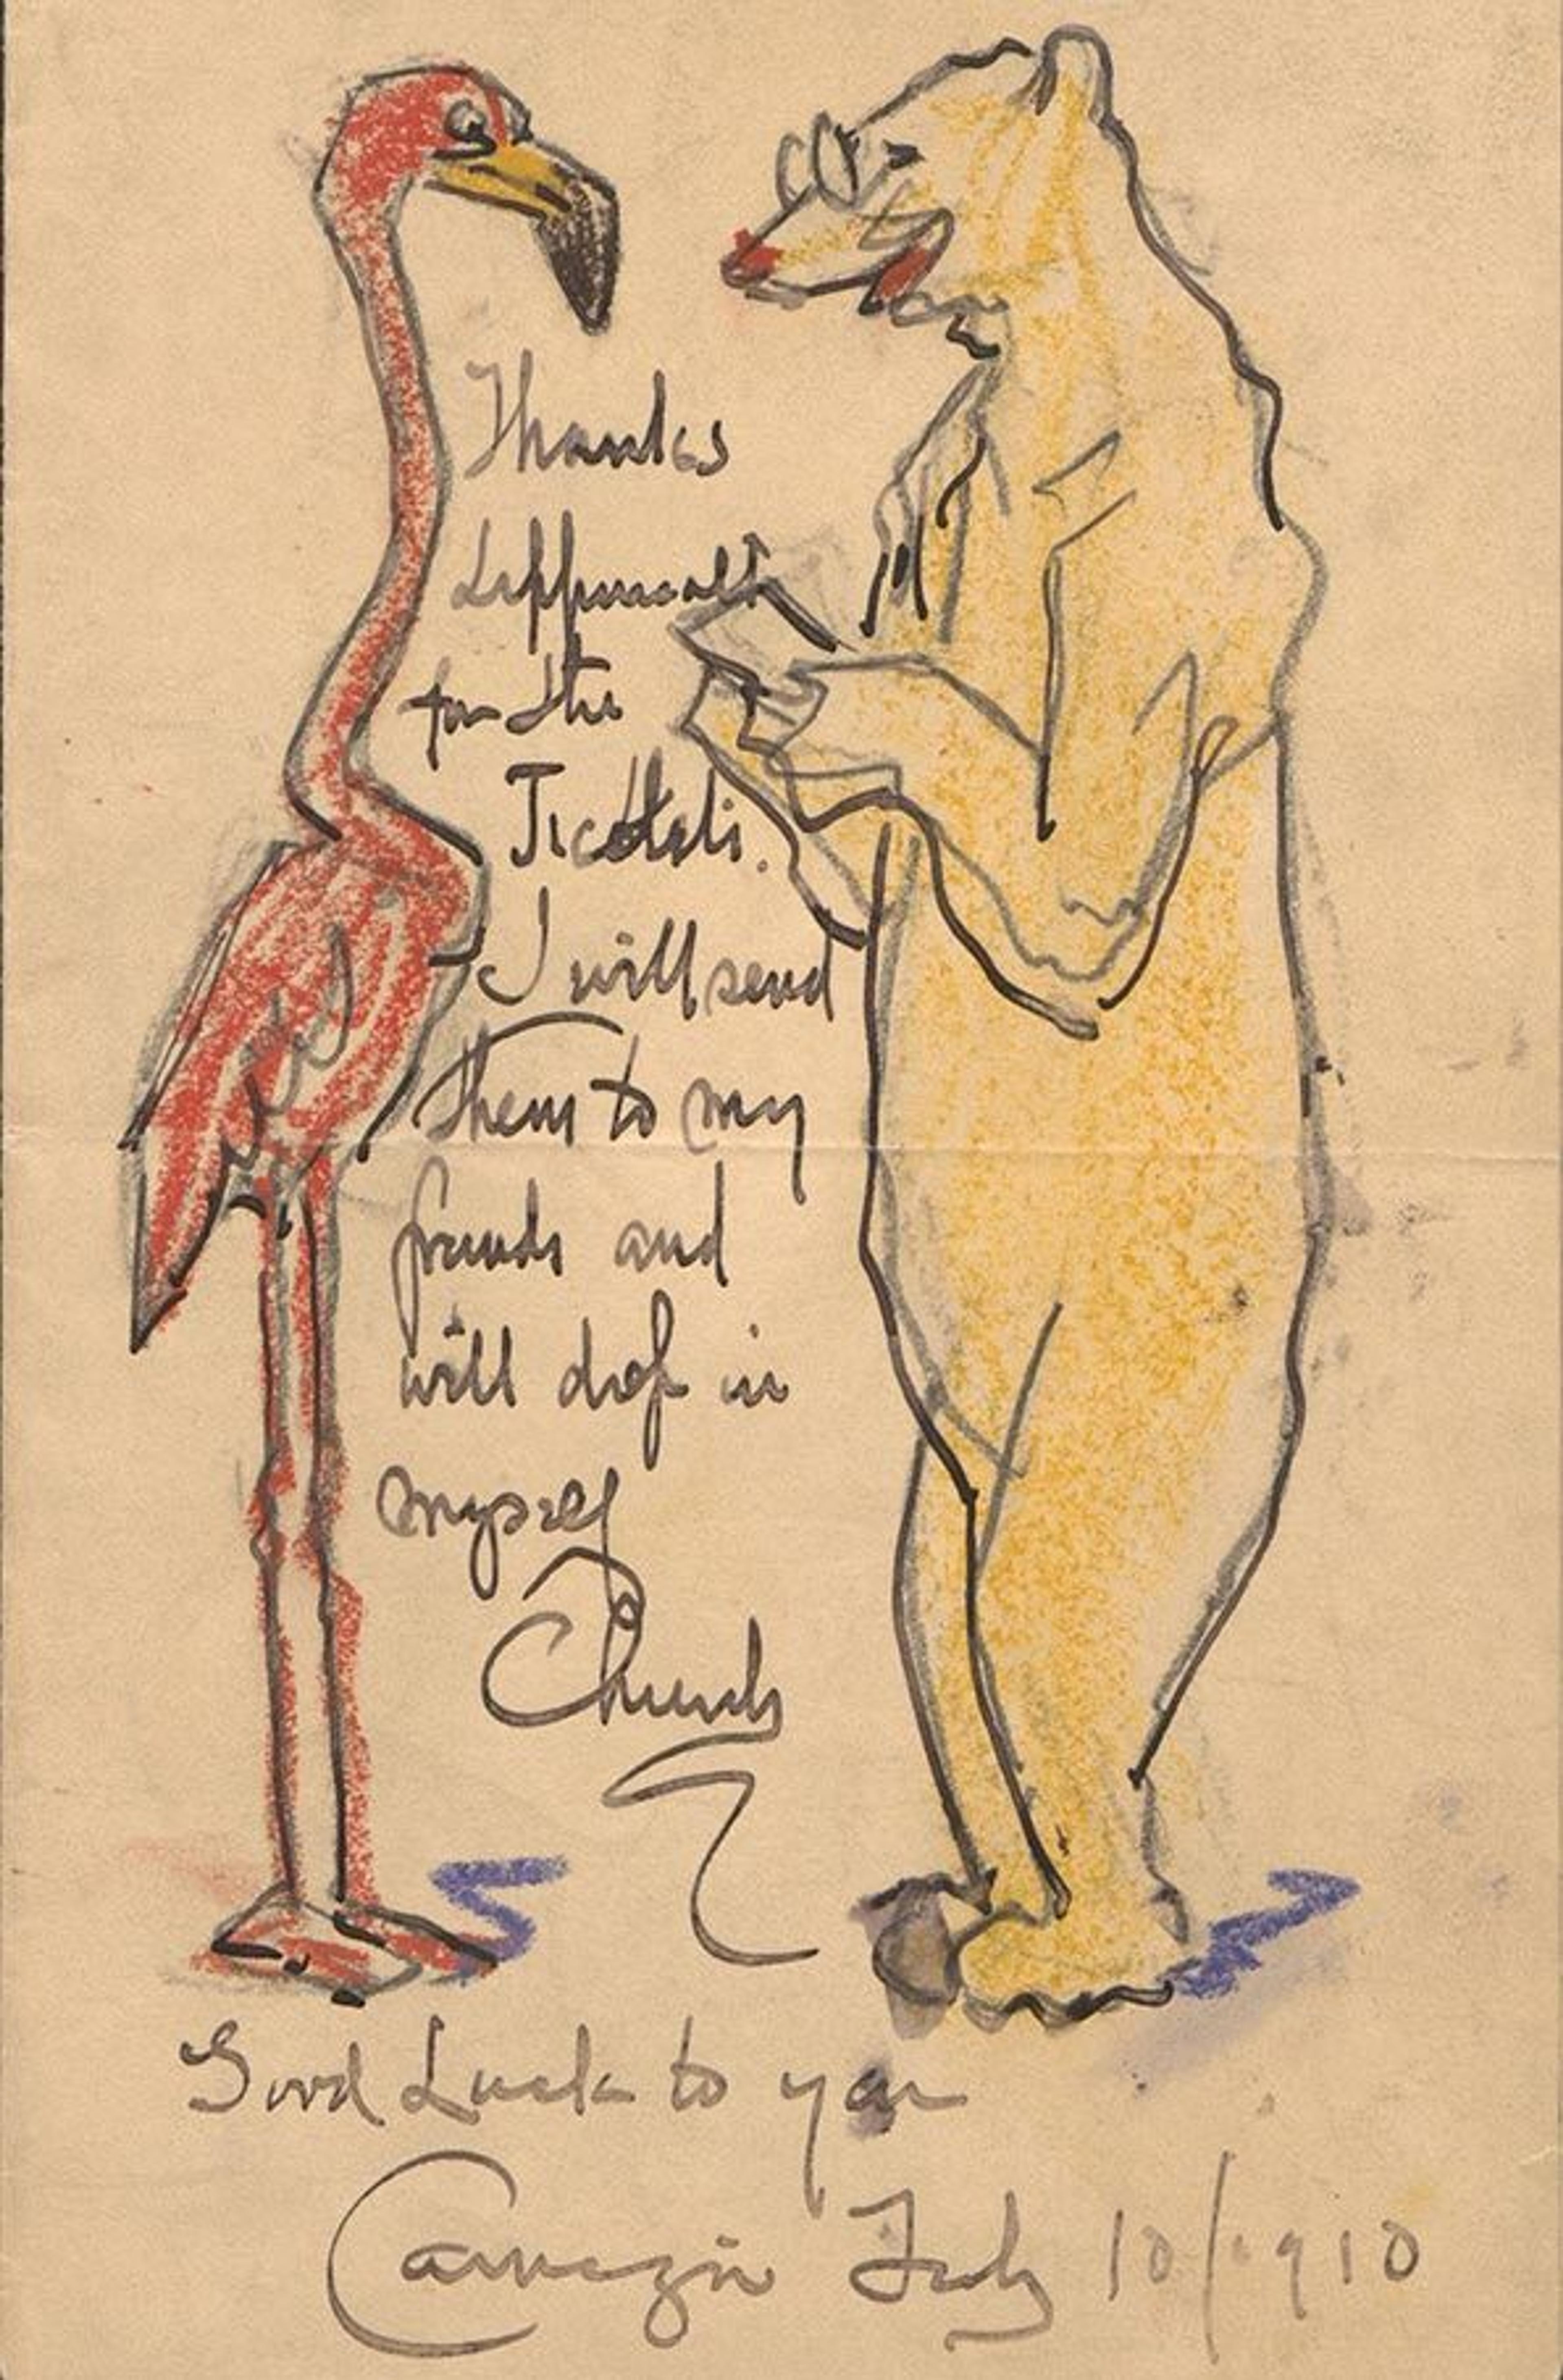 Thanks
Lippincott
for the
Tickets.
I will send
them to my
friends and
will drop in
myself
Church
Good Luck to you
Carnegie July 10/1910